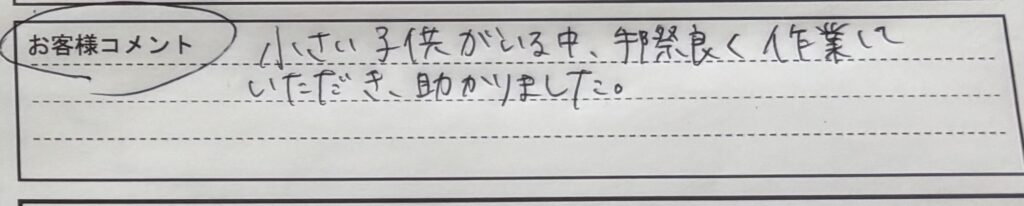 お客様コメント
小さい子供がいる中、手際良く作業して
いただき、助かりました。